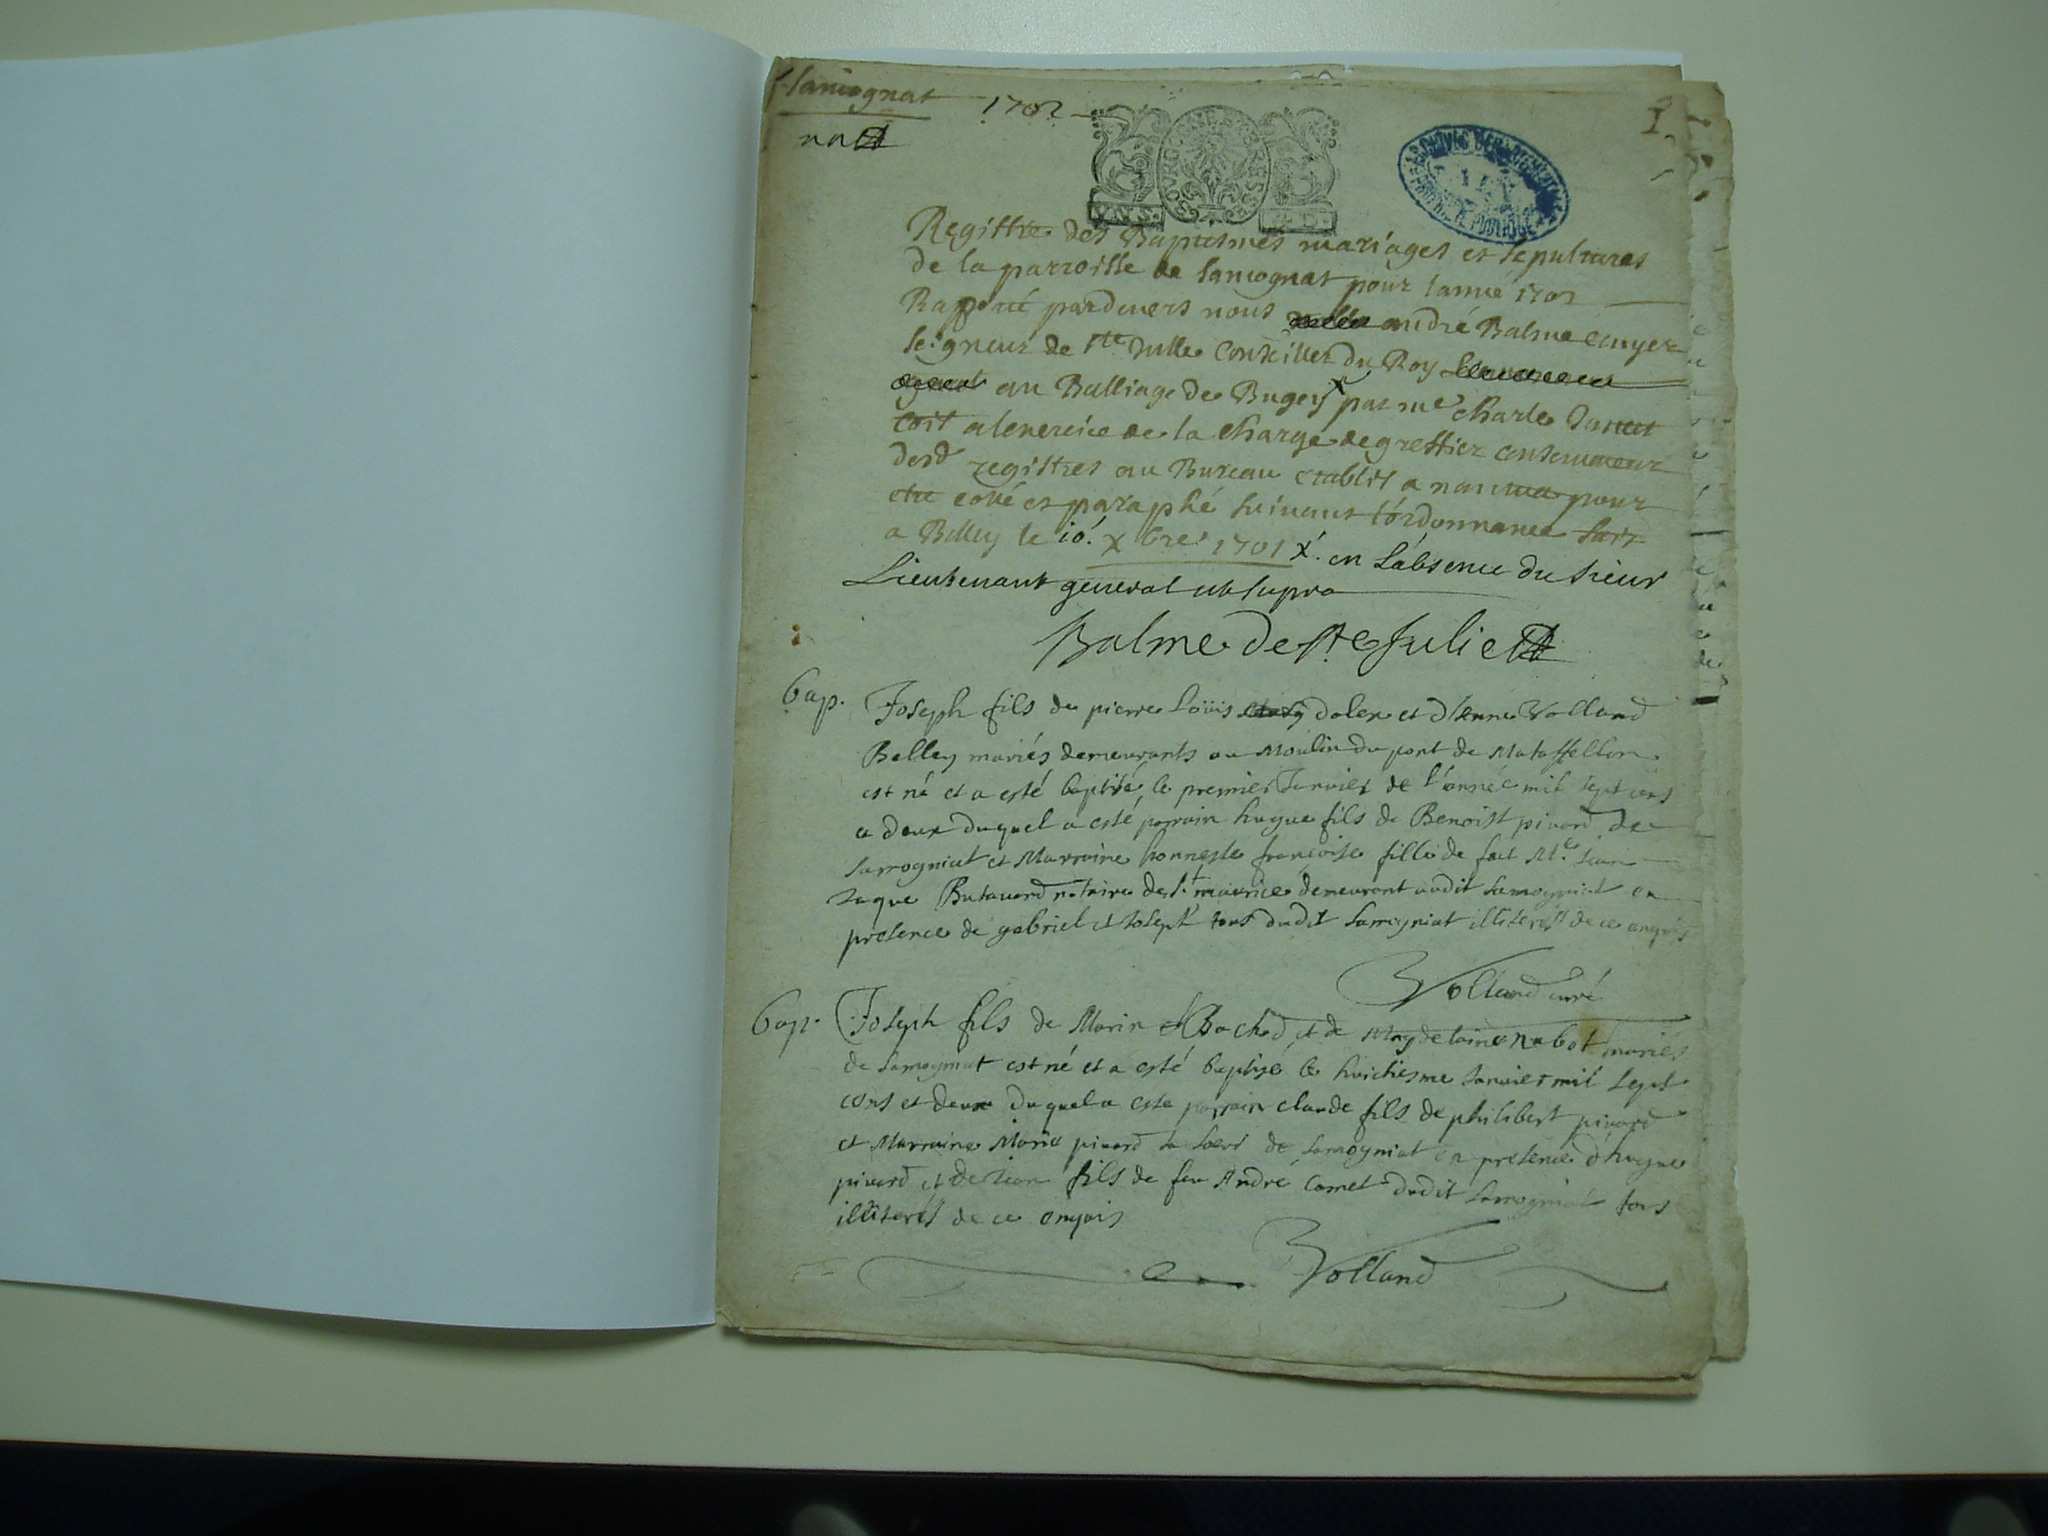 samognat 1702
Registre des Baptesmes mariages et sepultures
de la parroisse de samognat pour lanneé 1702
pardevers nous andré Balme écuyer
seigneur de ste Jullie Conseiller du Roy
au Balliage de Bugey par me Charle
a lexercice de la charge de greffier conservateur
desd registres au Bureau etablit a nantua pour
etre cotté et paraphé suivant lórdonnance fait
a Belley le 10. xbre 1701 X. en L'absence du sieur
Lieutenant general ut supra
Balme de ste Julie
bap. Joseph fils de pierre Loüis dolex et d'Anne Volland
Belley mariés demeurants au Moulin du pont de Mataffellon
est né et a esté baptisé le premier Janvier de l'année mil sept cens
et deux duquel a esté parrain hugue fils de Benoist pivard de
samogniat et Marraine honneste françoise fille de Me Jean
Jaque Butavard notaire de st maurice demeurant audit samogniat en
presence de gabriel et Joseph tous dudit samogniat illiterés de ce enquis
Volland curé
bap. Joseph fils de Marin Bochod et de Magdelaine nabot mariés
de samogniat est né et a esté baptisé le huictiesme Janvier mil sept
cens et deux duquel a este parrain claude fils de philibert pivard
et Marraine Marie pivard sa soeur de samogniat en presence d'hugue
pivard et de Jean fils de feu André Comet dudit samogniat tous
illiterés de ce enquis
Volland